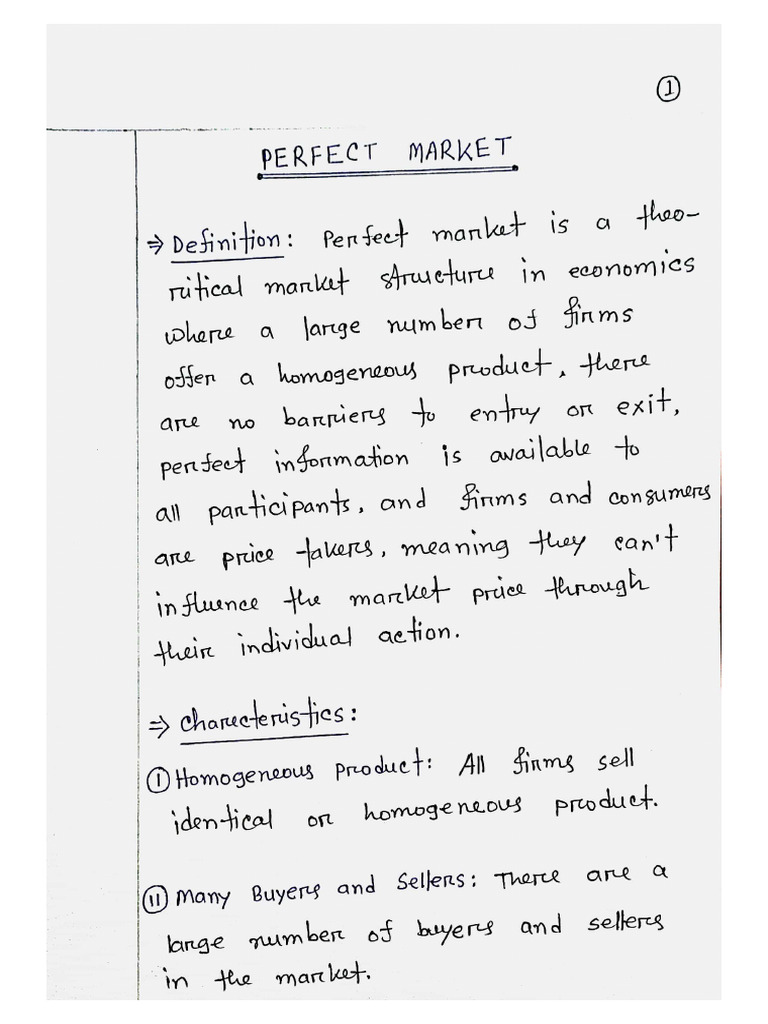 ①
PERFECT MARKET
⇒ Definition: Perfect market is a theo-
ritical market structure in economics
where a large number of firms
offer a homogeneous product, there
are no barriers to entry or exit,
perfect information is available to
all participants, and firms and consumers
are price takers, meaning they can't
influence the market price through
their individual action.
⇒ Charecteristics:
Ⓘ Homogeneous Product: All firms sell
identical or homogeneous product.
(II) Many Buyers and Sellers: There are a
large number of buyers and sellers
in the market.